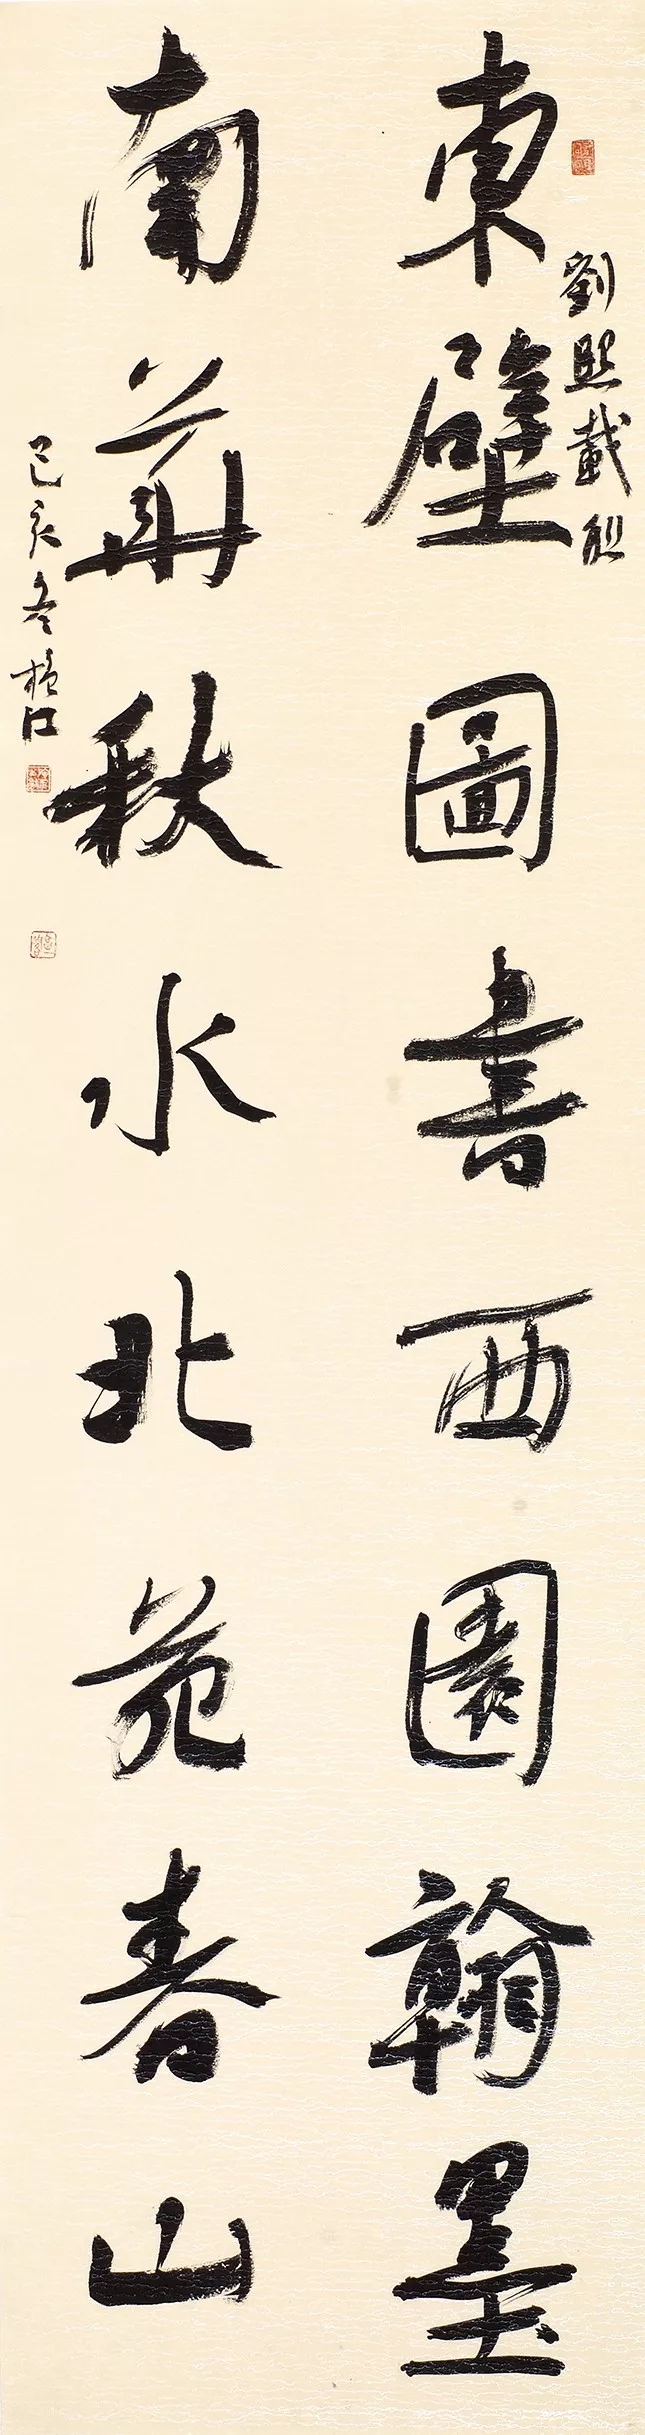 劉熙載聯
東壁圖書西園翰墨
南華秋水北苑春山
己亥冬江